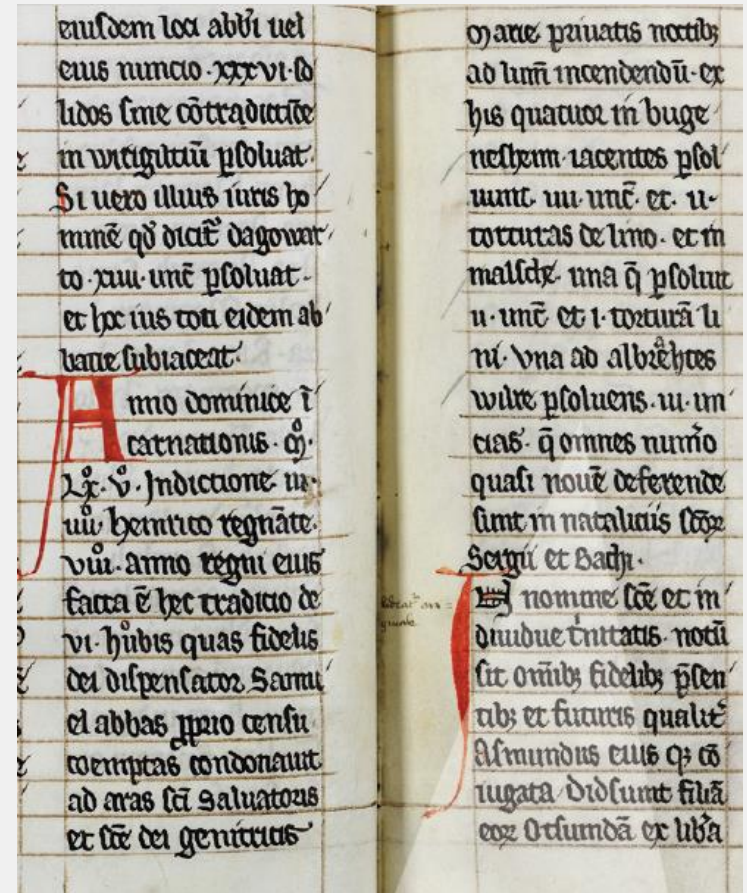 eiusdem loci abbi uel
eius nuncio · xxxvi · so
lidos sine cōtradictiōe
in witigiltiū p̱soluat ·
Si uero illius iuris ho
minē qd̄ dicit᷑ dagowar
to · xiiii · unc̄ p̱soluat ·
et hoc ius toti eidem ab
batie subiaceat ·
Anno dominice ī
carnationis · Mͦ ·
Lxͦ · Vͦ · Indictione iii ·
iiiiͦ heinrico regnāte ·
viiiiͦ · anno regni eius
facta ē hec tradicio de
vi · hůbis quas fidelis
dei dispensator Samu
el abbas ꝓprio censu
coemptas condonauit
ad aras sc̄i Saluatoris
et sc̄e dei genitricis
Marie priuatis noctibꝫ
ad lum̄ incendendū · ex
his quatuor in buge
nesheim iacentes p̱sol
uunt · iiii · unc̄ · et · ii ·
torturas de lino · et in
malsche · una q̄ p̱soluit
ii · unc̄ et i · torturā li
ni · Vna ad albrehtes
wilre p̱soluens · iii · un
cias · q̄ omnes num̄o
quasi nouē deferende
sunt in nataliciis sc̄oꝝ
Sergii et Bachi ·
In nomine sc̄e et in
diuidue t̄nitatis · notū
sit om̄ibꝫ fidelibꝫ p̄sen
tibꝫ et futuris qualit᷑
Asmundus eius qꝫ cō
iugata Didsunt filiā
eoꝝ Otsundā ex lib̄a